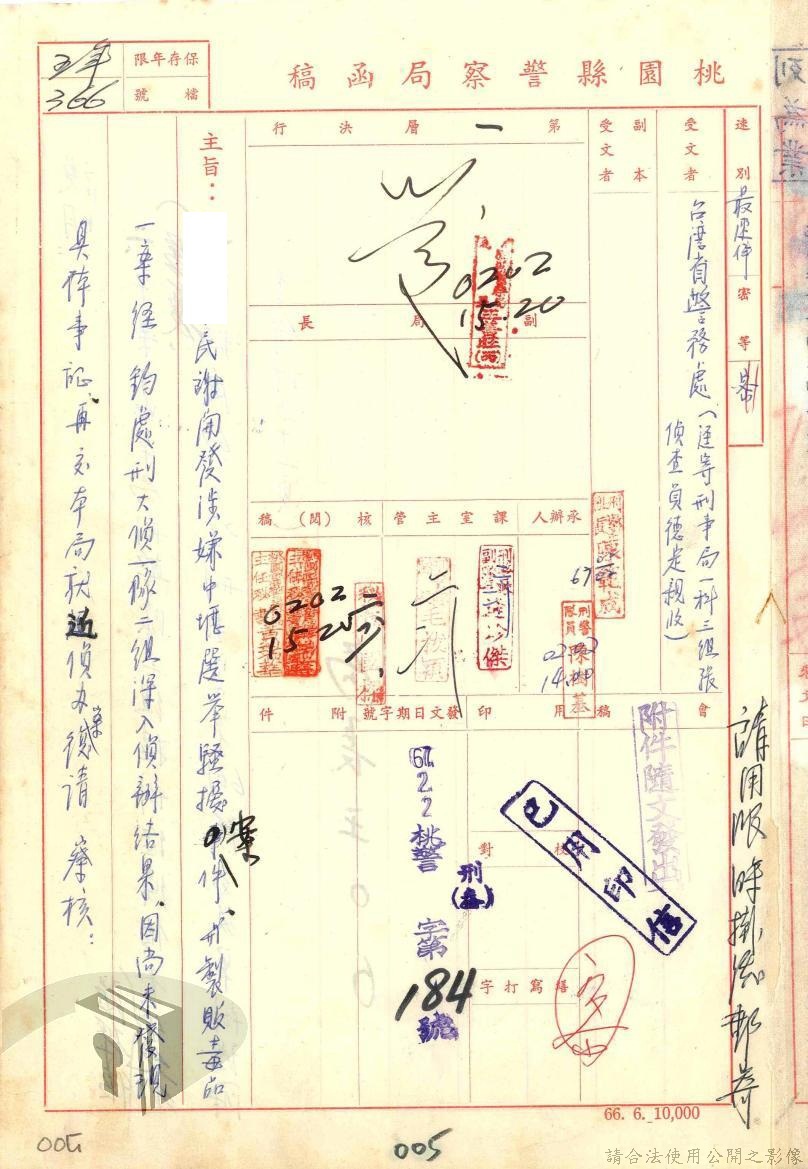 桃園縣警察局函稿
保存年限 五年
檔號 366
速別 最速件 密等 密
受文者 台灣省警務處(逕寄刑事局一科三組張
偵查員德生親收)
副本受文者
第一層決行
0202
15.20
副局長
承辦人
課室主管
核(閱)稿
67
02
14
0202
15 20
會稿
用印
發文日期字號
附件
附件隨文發出
已用印信
67.2.2 桃警刑(毒)字第184號
校對
繕寫打字
主旨:
民謝開發涉嫌中壢選舉騷擾案件及製販毒品
一案經 鈞處刑大偵一隊二組深入偵辦結果,因尚未發現
具體事証,再交本局就近偵辦,請 察核:
請用限時掛號郵寄
66. 6. 10,000
005
005
列為業
請合法使用公開之影像